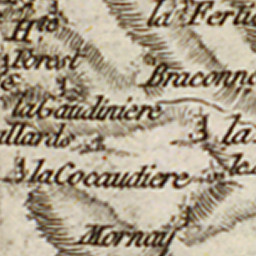 la Ferti
Hte
Forest
Braconn
la Gaudiniere
llards
la
la Cocaudiere
le
Mornay